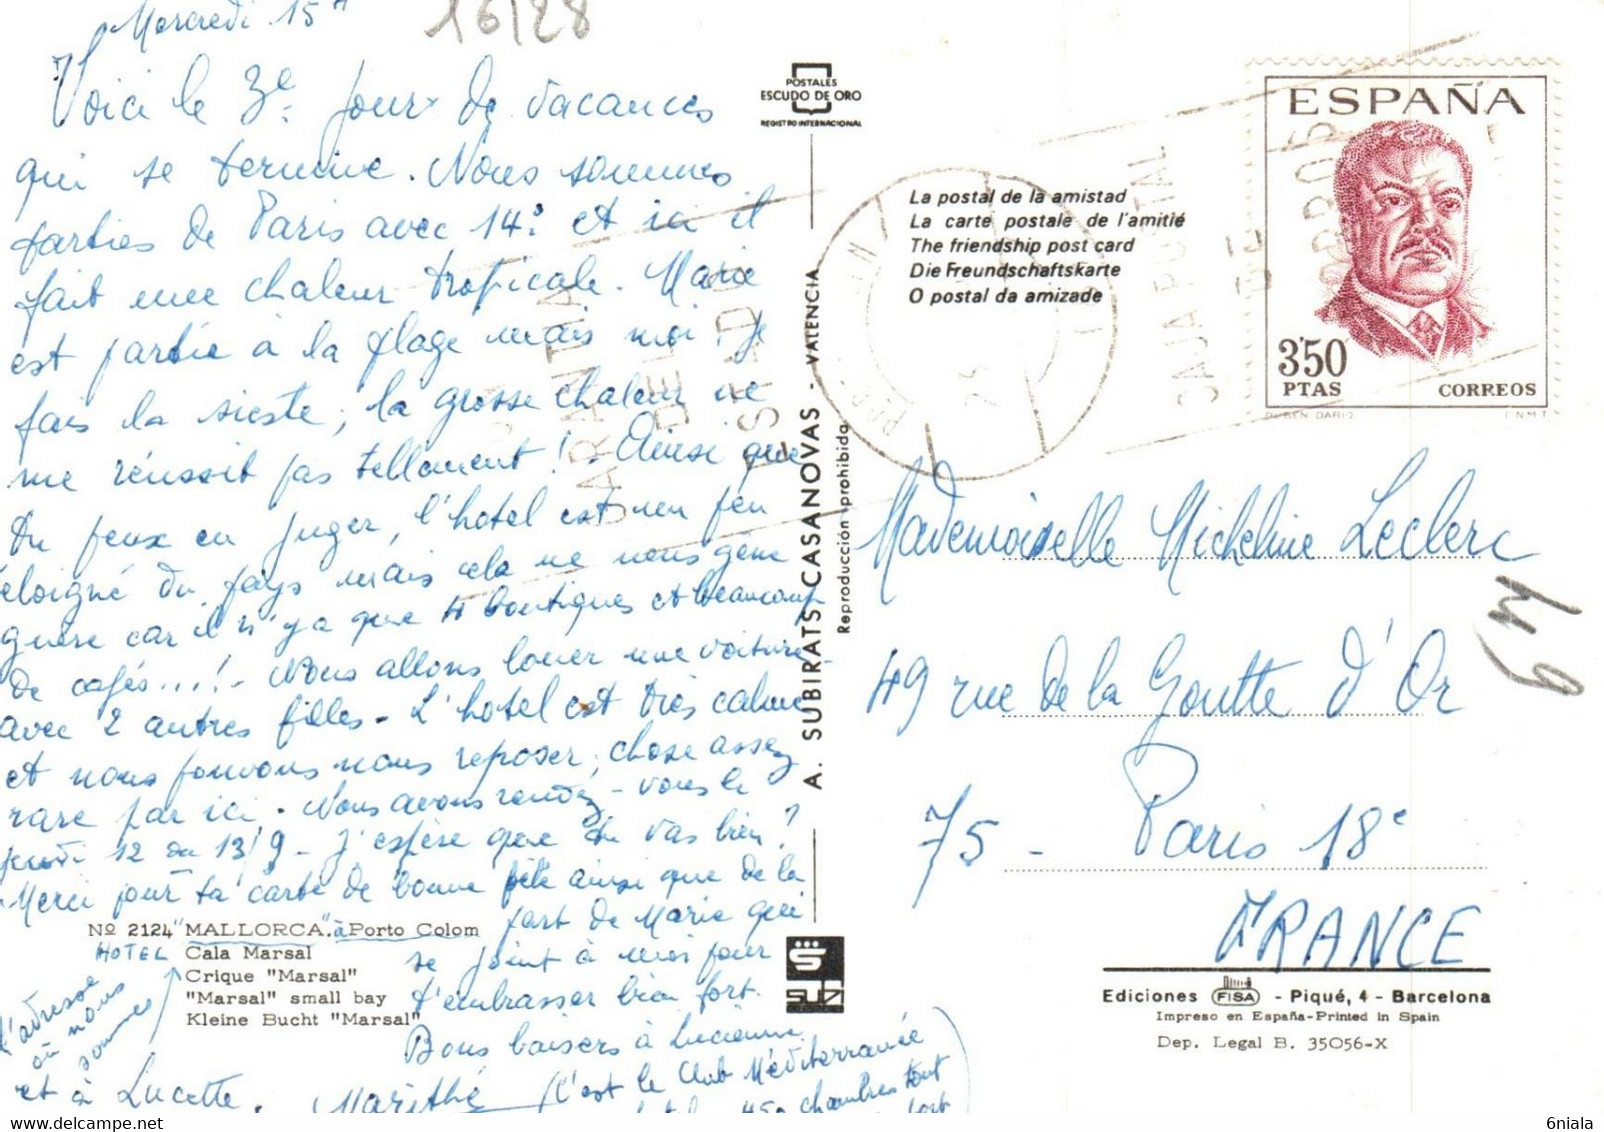 Mercredi 15H
16/28
Voici le 3e jour de vacances
qui se termine. Nous sommes
parties de Paris avec 14° et ici il
fait une chaleur tropicale. Marie
est partie à la plage mais moi je
fais la sieste, la grosse chaleur ne
me réussit pas tellement ! Ainsi que
tu peux en juger, l'hotel est un peu
éloigné du pays mais cela ne nous gène
guère car il n'y a que 4 boutiques et beaucoup
de cafés...! Nous allons louer une voiture
avec 2 autres filles. L'hotel est très calme
et nous pouvons nous reposer, chose assez
rare par ici. Nous avons rendez-vous le
jeudi 12 ou 13/9 - J'espère que tu vas bien ?
Merci pour ta carte de bonne fête ainsi que de la
part de Marie qui
se joint à moi pour
t'embrasser bien fort.
Bons baisers à Lucienne
et à Lucette. Marithé
(C'est le Club Méditerranée
450 chambres tout
HOTEL
à
l'adresse
où nous
sommes
Nº 2124 "MALLORCA". Porto Colom
Cala Marsal
Crique "Marsal"
"Marsal" small bay
Kleine Bucht "Marsal"
POSTALES
ESCUDO DE ORO
REGISTRO INTERNACIONAL
A. SUBIRATS CASANOVAS - VALENCIA
Reproducción prohibida
La postal de la amistad
La carte postale de l'amitié
The friendship post card
Die Freundschaftskarte
O postal da amizade
ESPAÑA
3'50
PTAS
CORREOS
RUBEN DARIO
F.N.M.T.
CAJA POSTAL
DE
AHORROS
GARANTIA
DEL
ESTADO
Mademoiselle Micheline Leclerc
49 rue de la Goutte d'Or
75 - Paris 18e
FRANCE
Ediciones FISA - Piqué, 4 - Barcelona
Impreso en España-Printed in Spain
Dep. Legal B. 35056-X
6niala